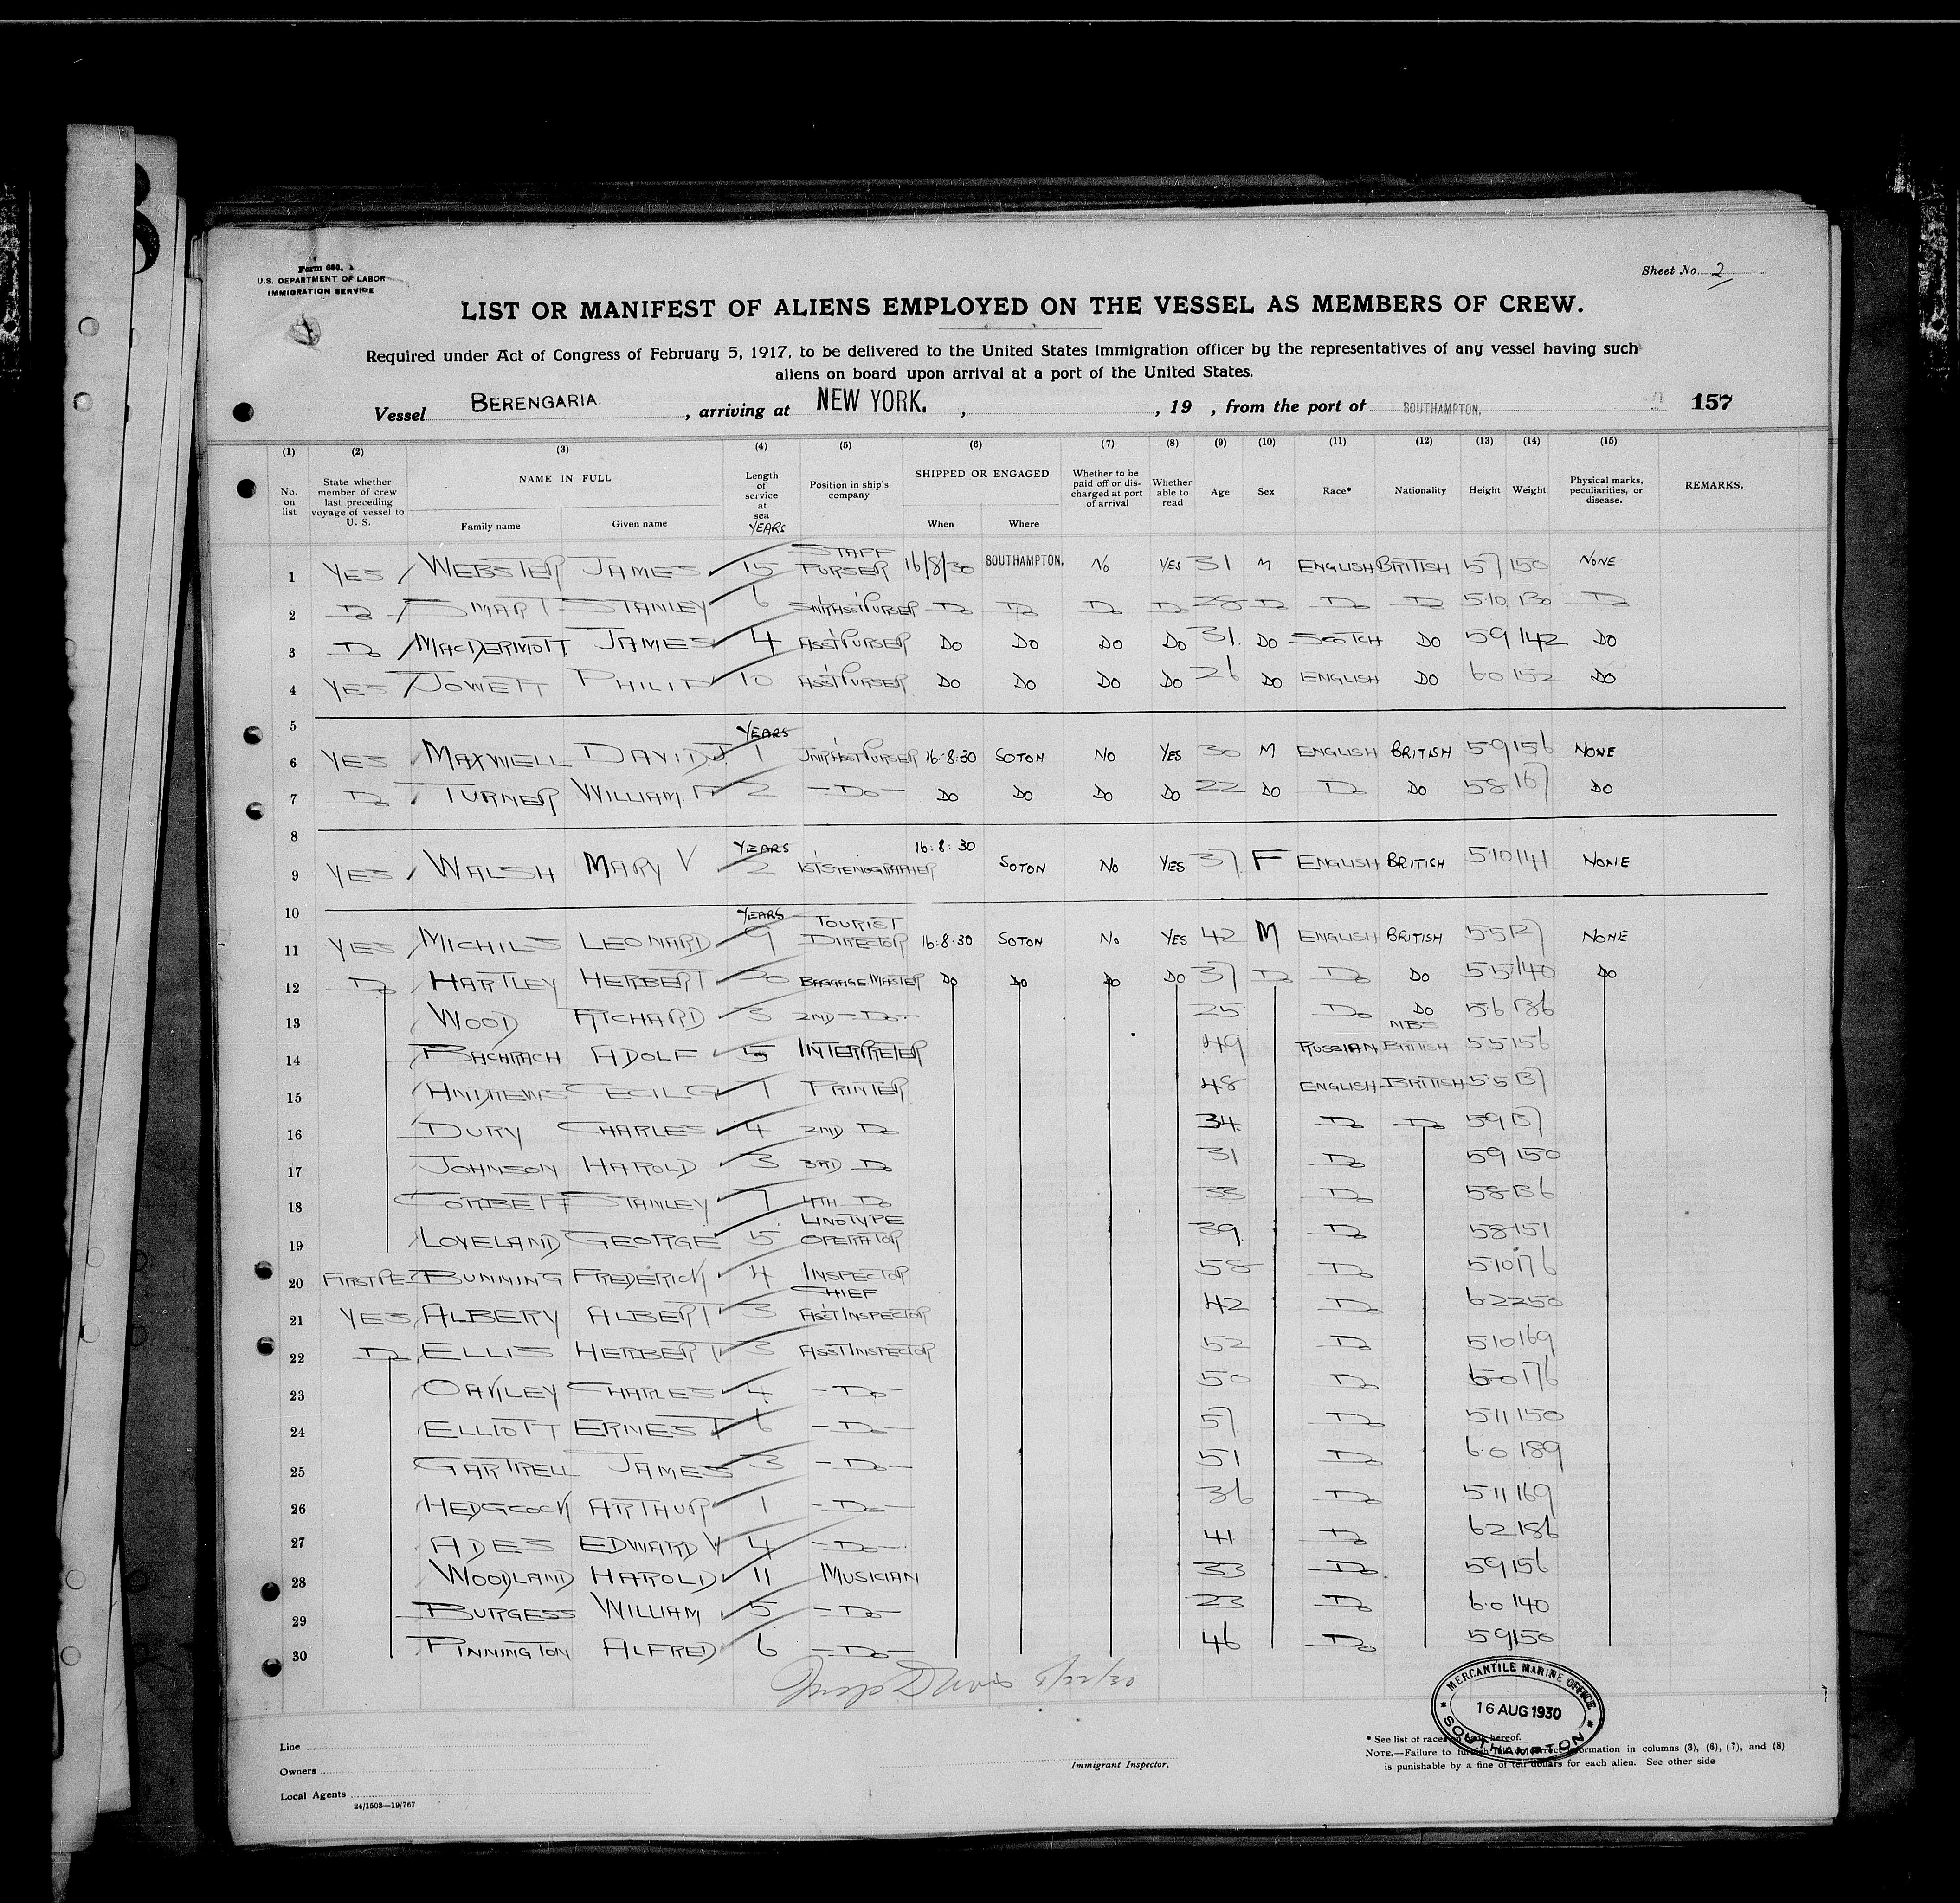 Form 680.
U.S. DEPARTMENT OF LABOR
IMMIGRATION SERVICE
Sheet No. 2
LIST OR MANIFEST OF ALIENS EMPLOYED ON THE VESSEL AS MEMBERS OF CREW.
Required under Act of Congress of February 5, 1917, to be delivered to the United States immigration officer by the representatives of any vessel having such
aliens on board upon arrival at a port of the United States.
Vessel BERENGARIA. , arriving at NEW YORK. , , 19 , from the port of SOUTHAMPTON. 157
(1) (2) (3) (4) (5) (6) (7) (8) (9) (10) (11) (12) (13) (14) (15)
No. on list State whether member of crew last preceding voyage of vessel to U. S. NAME IN FULL Family name Given name Length of service at sea YEARS Position in ship's company SHIPPED OR ENGAGED When Where Whether to be paid off or discharged at port of arrival Whether able to read Age Sex Race* Nationality Height Weight Physical marks, peculiarities, or disease. REMARKS.
1 YES WEBSTER JAMES 15 STAFF PURSER 16/8/30 SOUTHAMPTON. NO YES 31 M ENGLISH BRITISH 57 150 NONE
2 DO SMART STANLEY 6 DO DO DO DO 28 DO DO DO 5.10 130 DO
3 DO MACDERMOTT JAMES 4 ASST PURSER DO DO DO DO 31 DO SCOTCH DO 59 142 DO
4 YES JOWETT PHILIP 10 ASST PURSER DO DO DO DO 26 DO ENGLISH DO 60 152 DO
5 YEARS
6 YES MAXWELL DAVID.J. 1 JNR ASST PURSER 16.8.30 SOTON NO YES 30 M ENGLISH BRITISH 59 156 NONE
7 DO TURNER WILLIAM. 2 -DO- DO DO DO DO 22 DO DO DO 58 167 DO
8 YEARS 16.8.30
9 YES WALSH MARY V 2 1ST STENOGRAPHER SOTON NO YES 37 F ENGLISH BRITISH 5.10 141 NONE
10 YEARS TOURIST
11 YES MICHILS LEONARD 9 DIRECTOR 16.8.30 SOTON NO YES 42 M ENGLISH BRITISH 5.5 127 NONE
12 DO HARTLEY HERBERT BAGGAGE MASTER DO DO DO DO 37 DO DO DO 5.5 140 DO
13 WOOD RICHARD 3 2ND -DO- 25 DO DO 5.6 136
14 BACHRACH ADOLF 5 INTERPRETER 49 RUSSIAN BRITISH 5.5 156
15 ANDREWS CECIL G 1 PRINTER 48 ENGLISH BRITISH 5.5 137
16 DURY CHARLES 4 2ND DO 34 DO DO 59 137
17 JOHNSON HAROLD 3 3RD DO 31 DO 59 150
18 CORBETT STANLEY 7 4TH DO 33 DO 58 136
19 LOVELAND GEORGE 5 LINOTYPE OPERATOR 39 DO 58 151
20 BUNNING FREDERICK 4 INSPECTOR 58 DO 510 176
21 YES ALBERY ALBERT 3 CHIEF ASST INSPECTOR 42 DO 6.2 250
22 DO ELLIS HERBERT 3 ASST INSPECTOR 52 DO 510 169
23 OAKLEY CHARLES 4 -DO- 50 DO 6.0 176
24 ELLIOTT ERNEST 6 -DO- 57 DO 511 150
25 GARTRELL JAMES 3 -DO- 51 DO 6.0 189
26 HEDGCOCK ARTHUR 1 -DO- 36 DO 511 169
27 ADES EDWARD V 4 -DO- 41 DO 6.2 186
28 WOODLAND HAROLD 11 MUSICIAN 33 DO 59 156
29 BURGESS WILLIAM 5 -DO- 23 DO 6.0 140
30 PINNINGTON ALFRED 6 -DO- 46 DO 59 150
8/22/30
MERCANTILE MARINE OFFICE
16 AUG 1930
SOUTHAMPTON
Line
Owners
Local Agents
24/1503—19/767
Immigrant Inspector.
* See list of races on back hereof.
NOTE.—Failure to furnish full or correct information in columns (3), (6), (7), and (8)
is punishable by a fine of ten dollars for each alien. See other side